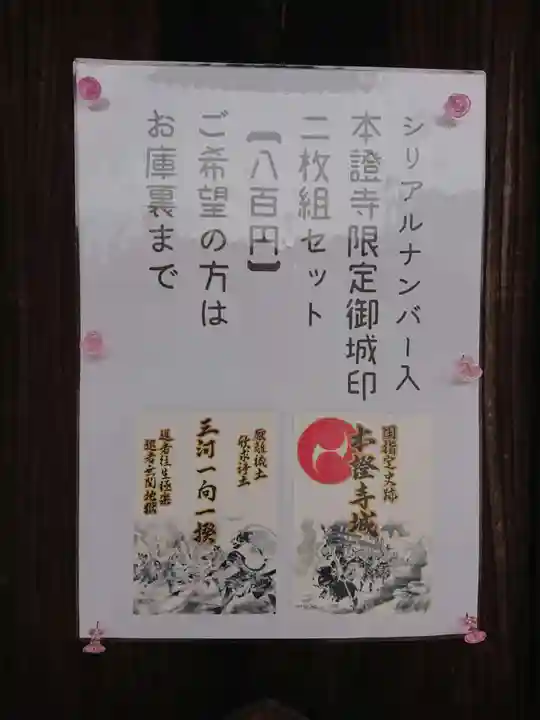 シリアルナンバー入
本證寺限定御城印
二枚組セット
【八百円】
ご希望の方は
お庫裏まで
国指定史跡
本證寺城
厭離穢土
欣求浄土
三河一向一揆
進者往生極楽
退者無間地獄